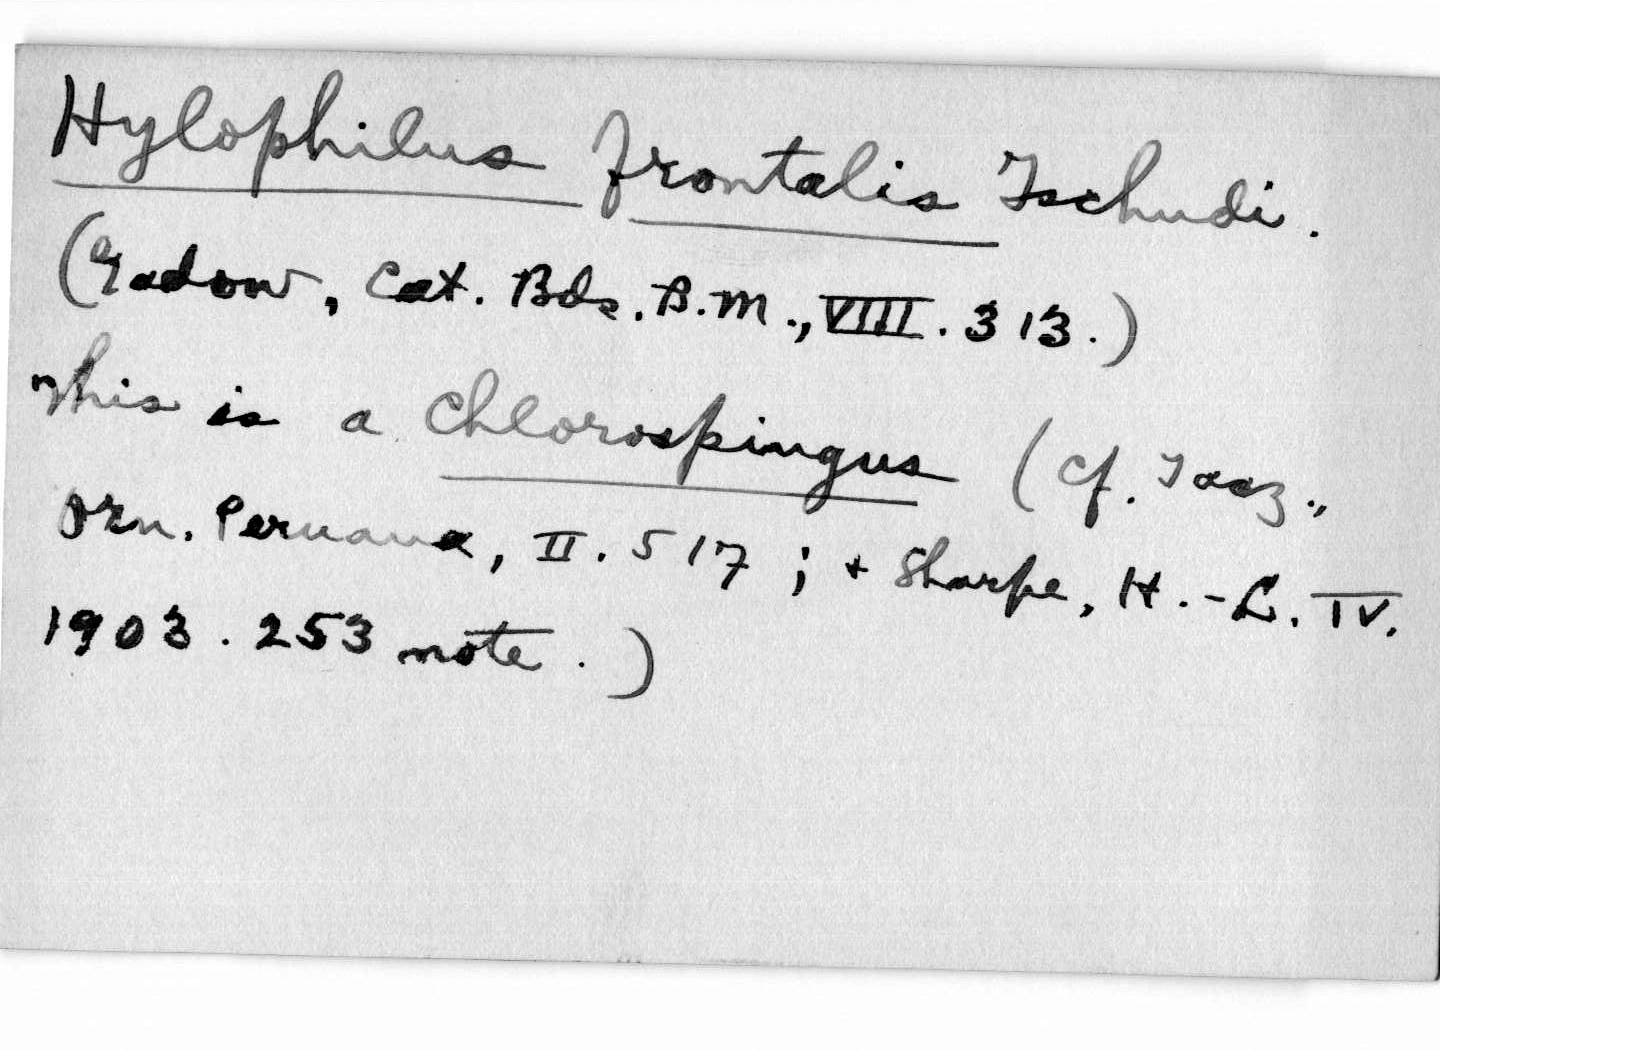 Hylophilus frontalis Tschudi.
(Gadow, Cat. Bds. B.M., VIII. 313.)
This is a Chlorospingus (Cf. Tacz.,
Orn. Peruana, II. 517; + Sharpe, H.-L. IV.
1903. 253 note.)